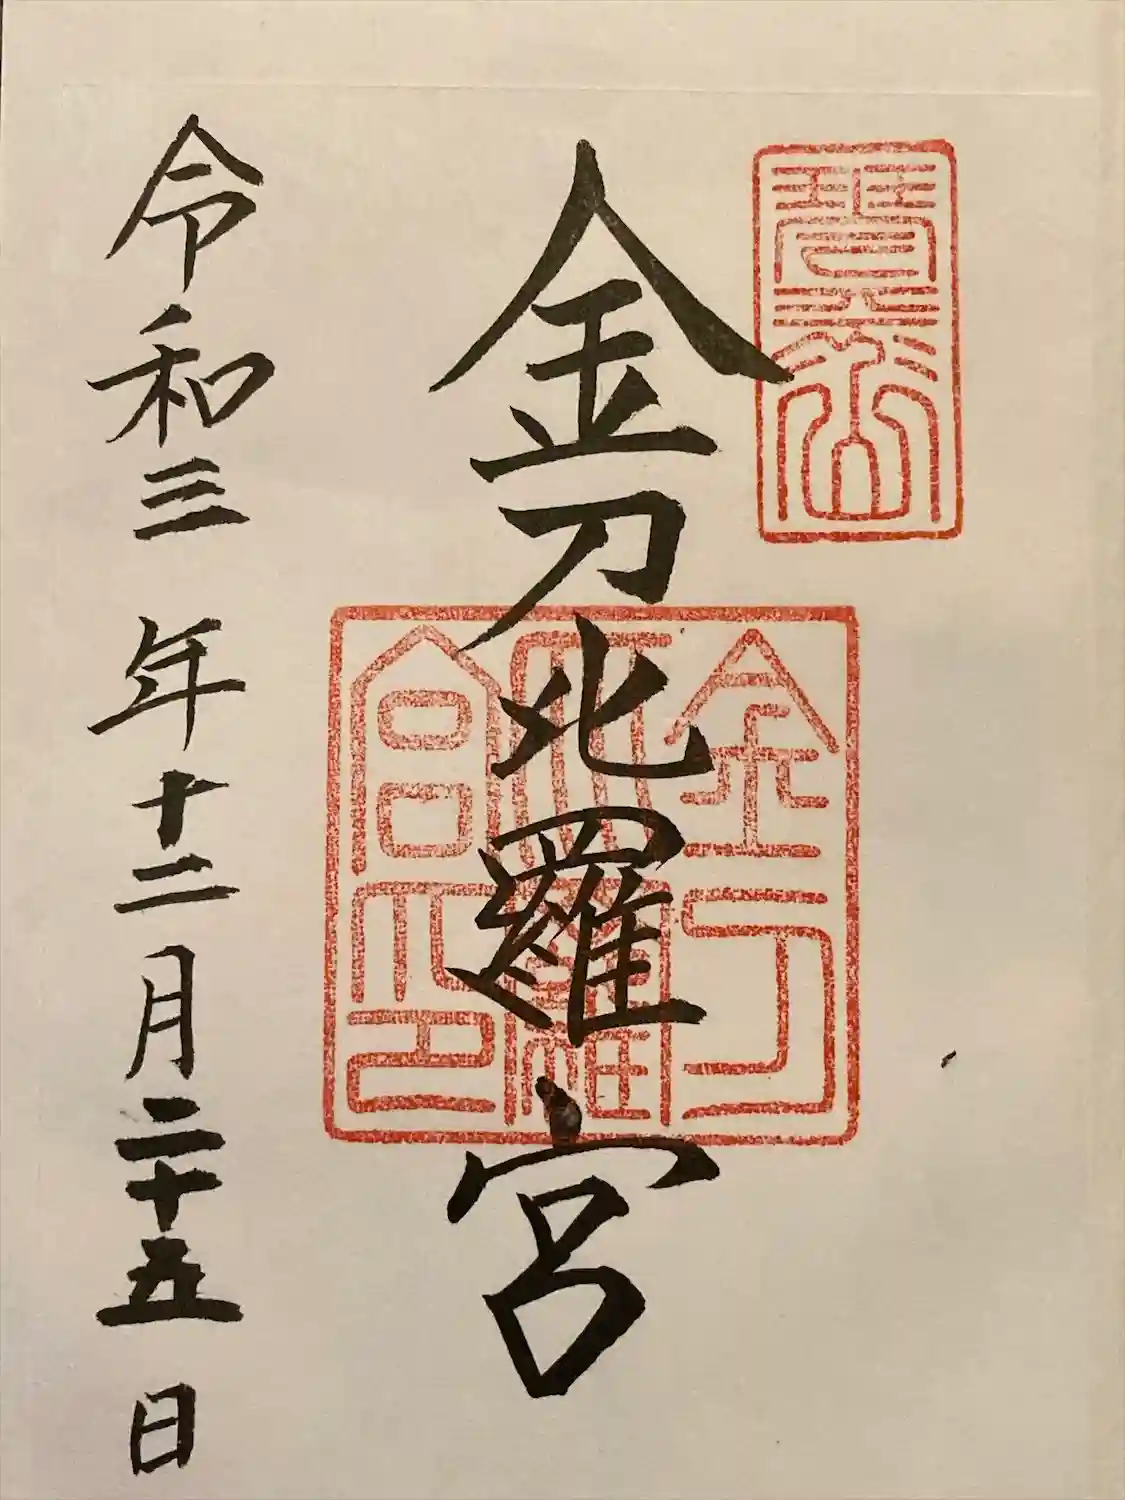 琴平山
金刀比羅宮
金刀
比羅
宮印
令和三年十二月二十五日